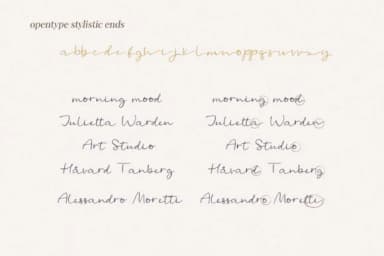 opentype stylistic ends
morning mood morning mood
Julietta Warden Julietta Warden
Art Studio Art Studio
Håvard Tanberg Håvard Tanberg
Alessandro Moretti Alessandro Moretti